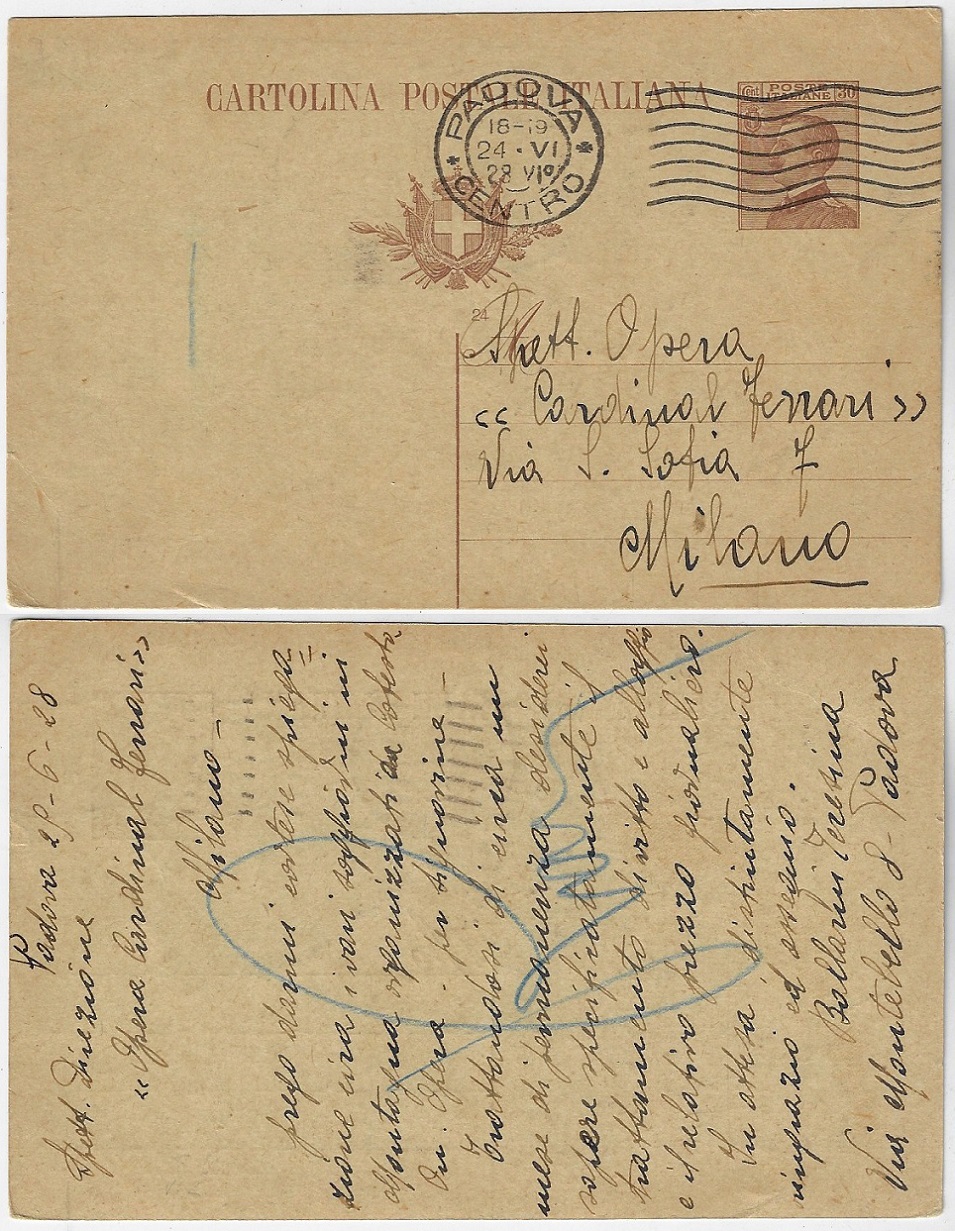 CARTOLINA POSTALE ITALIANA
PADOVA
18-19
24 · VI
28 VI°
CENTRO
Cent POSTE 30
ITALIANE
24
Spett. Opera
« Cardinal Ferrari »
Via S. Sofia 7
Milano
Padova 25-6-28
Spett. Direzione
« Opera Cardinal Ferrari »
Milano -
prego darmi cortese spiega=
zione circa i vari soggiorni in
Montagna organizzati da Cotesta
On. Opera - per signorine -
Trattandosi di circa un
mese di permanenza desiderei
sapere specificatamente il
trattamento di vitto e alloggio
e il relativo prezzo giornaliero.
In attesa, distintamente
ringrazio ed ossequio.
Ballarin Teresina
Via Montebello 8 - Padova